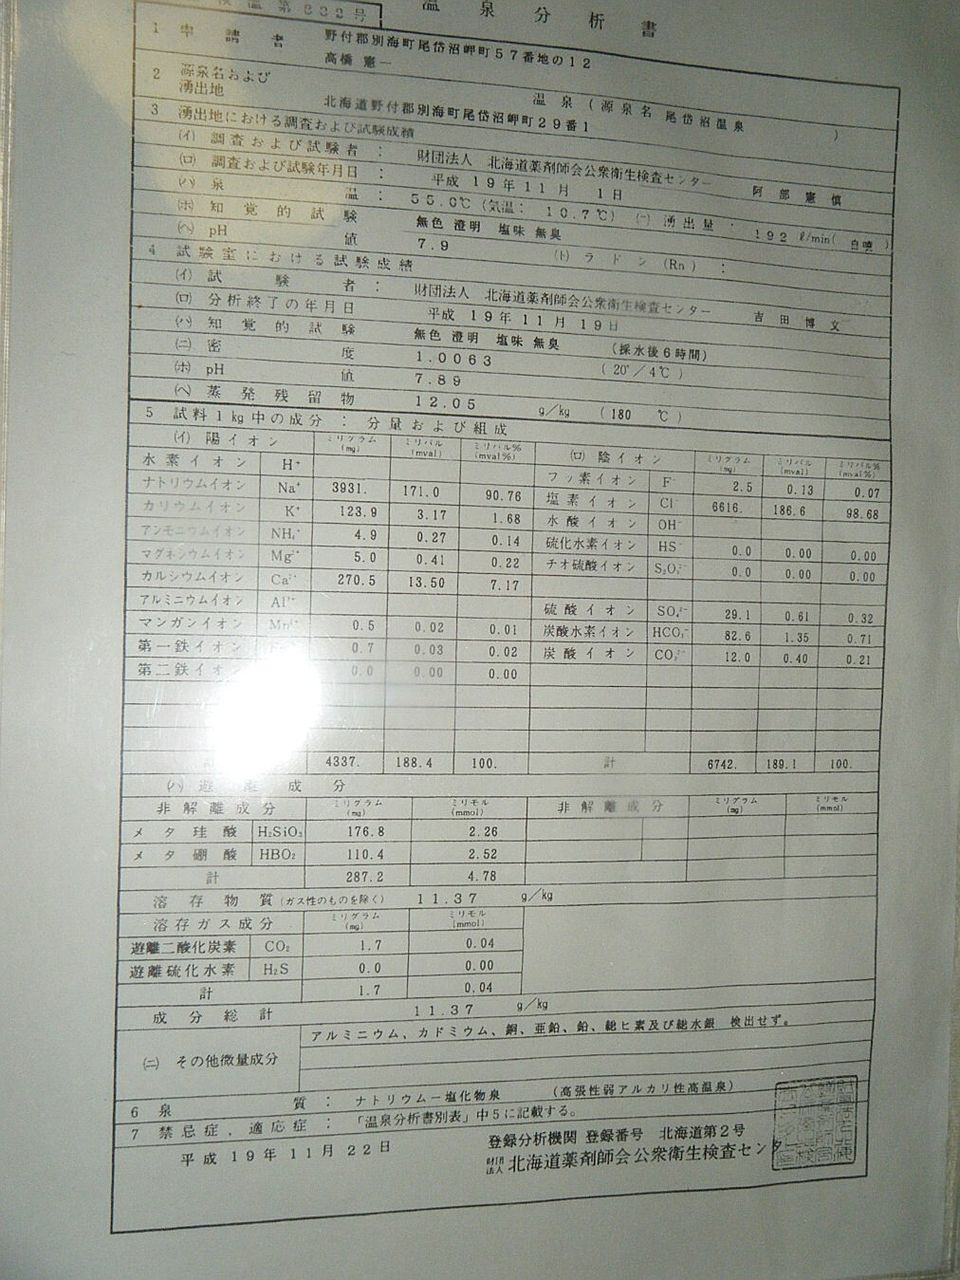 温泉分析書
1 申請者 野付郡別海町尾岱沼岬町57番地の12
高橋 憲一
2 源泉名および湧出地 温泉(源泉名 尾岱沼温泉)
北海道野付郡別海町尾岱沼岬町29番1
3 湧出地における調査および試験成績
(イ) 調査および試験者: 財団法人 北海道薬剤師会公衆衛生検査センター 阿部憲慎
(ロ) 調査および試験年月日: 平成 19年11月 1日
(ハ) 泉温: 55.0℃(気温: 10.7℃) (ニ) 湧出量: 192 ℓ/min(自噴)
(ホ) 知覚的試験 無色 澄明 塩味 無臭
(ヘ) pH値 7.9 (ト) ラドン(Rn):
4 試験室における試験成績
(イ) 試験者: 財団法人 北海道薬剤師会公衆衛生検査センター 吉田博文
(ロ) 分析終了の年月日 平成 19年11月19日
(ハ) 知覚的試験 無色 澄明 塩味 無臭 (採水後6時間)
(ニ) 密度 1.0063 (20°/4℃)
(ホ) pH値 7.89
(ヘ) 蒸発残留物 12.05 g/kg (180 ℃)
5 試料1kg中の成分: 分量および組成
(イ) 陽イオン ミリグラム(mg) ミリバル(mval) ミリバル%(mval%) (ロ) 陰イオン ミリグラム(mg) ミリバル(mval) ミリバル%(mval%)
水素イオン H⁺ フッ素イオン F⁻ 2.5 0.13 0.07
ナトリウムイオン Na⁺ 3931. 171.0 90.76 塩素イオン Cl⁻ 6616. 186.6 98.68
カリウムイオン K⁺ 123.9 3.17 1.68 水酸イオン OH⁻
アンモニウムイオン NH₄⁺ 4.9 0.27 0.14 硫化水素イオン HS⁻ 0.0 0.00 0.00
マグネシウムイオン Mg²⁺ 5.0 0.41 0.22 チオ硫酸イオン S₂O₃²⁻ 0.0 0.00 0.00
カルシウムイオン Ca²⁺ 270.5 13.50 7.17
アルミニウムイオン Al³⁺ 硫酸イオン SO₄²⁻ 29.1 0.61 0.32
マンガンイオン Mn²⁺ 0.5 0.02 0.01 炭酸水素イオン HCO₃⁻ 82.6 1.35 0.71
第一鉄イオン 0.7 0.03 0.02 炭酸イオン CO₃²⁻ 12.0 0.40 0.21
第二鉄イオン 0.0 0.00 0.00
計 4337. 188.4 100. 計 6742. 189.1 100.
(ハ) 遊離成分
非解離成分 ミリグラム(mg) ミリモル(mmol) 非解離成分 ミリグラム(mg) ミリモル(mmol)
メタ珪酸 H₂SiO₃ 176.8 2.26
メタ硼酸 HBO₂ 110.4 2.52
計 287.2 4.78
溶存物質(ガス性のものを除く) 11.37 g/kg
溶存ガス成分 ミリグラム(mg) ミリモル(mmol)
遊離二酸化炭素 CO₂ 1.7 0.04
遊離硫化水素 H₂S 0.0 0.00
計 1.7 0.04
成分総計 11.37 g/kg
(ニ) その他微量成分 アルミニウム、カドミウム、銅、亜鉛、鉛、総ヒ素及び総水銀 検出せず。
6 泉質: ナトリウムー塩化物泉 (高張性弱アルカリ性高温泉)
7 禁忌症、適応症: 「温泉分析書別表」中5に記載する。
平成 19年 11月 22日 登録分析機関 登録番号 北海道第2号
財団法人 北海道薬剤師会公衆衛生検査センター